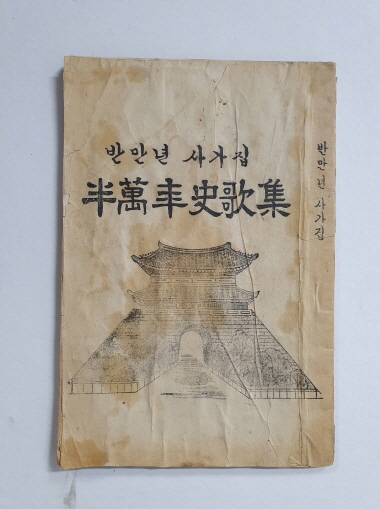 반만년 사가집
半萬年史歌集
반만년 사가집